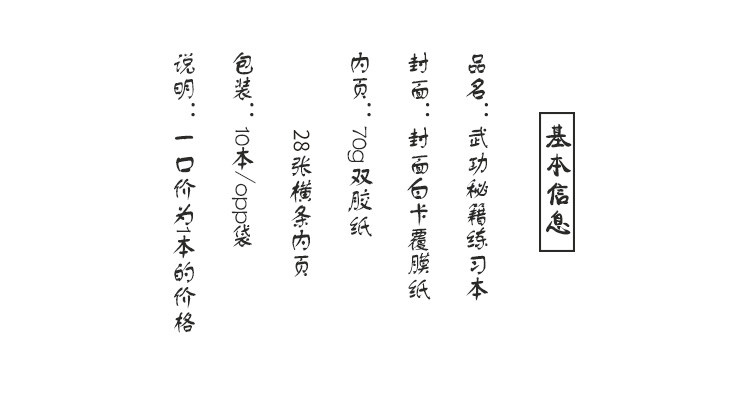 基本信息
品名：武功秘籍练习本
封面：封面白卡覆膜纸
内页：70g双胶纸
28张横条内页
包装：10本/opp袋
说明：一口价为1本的价格